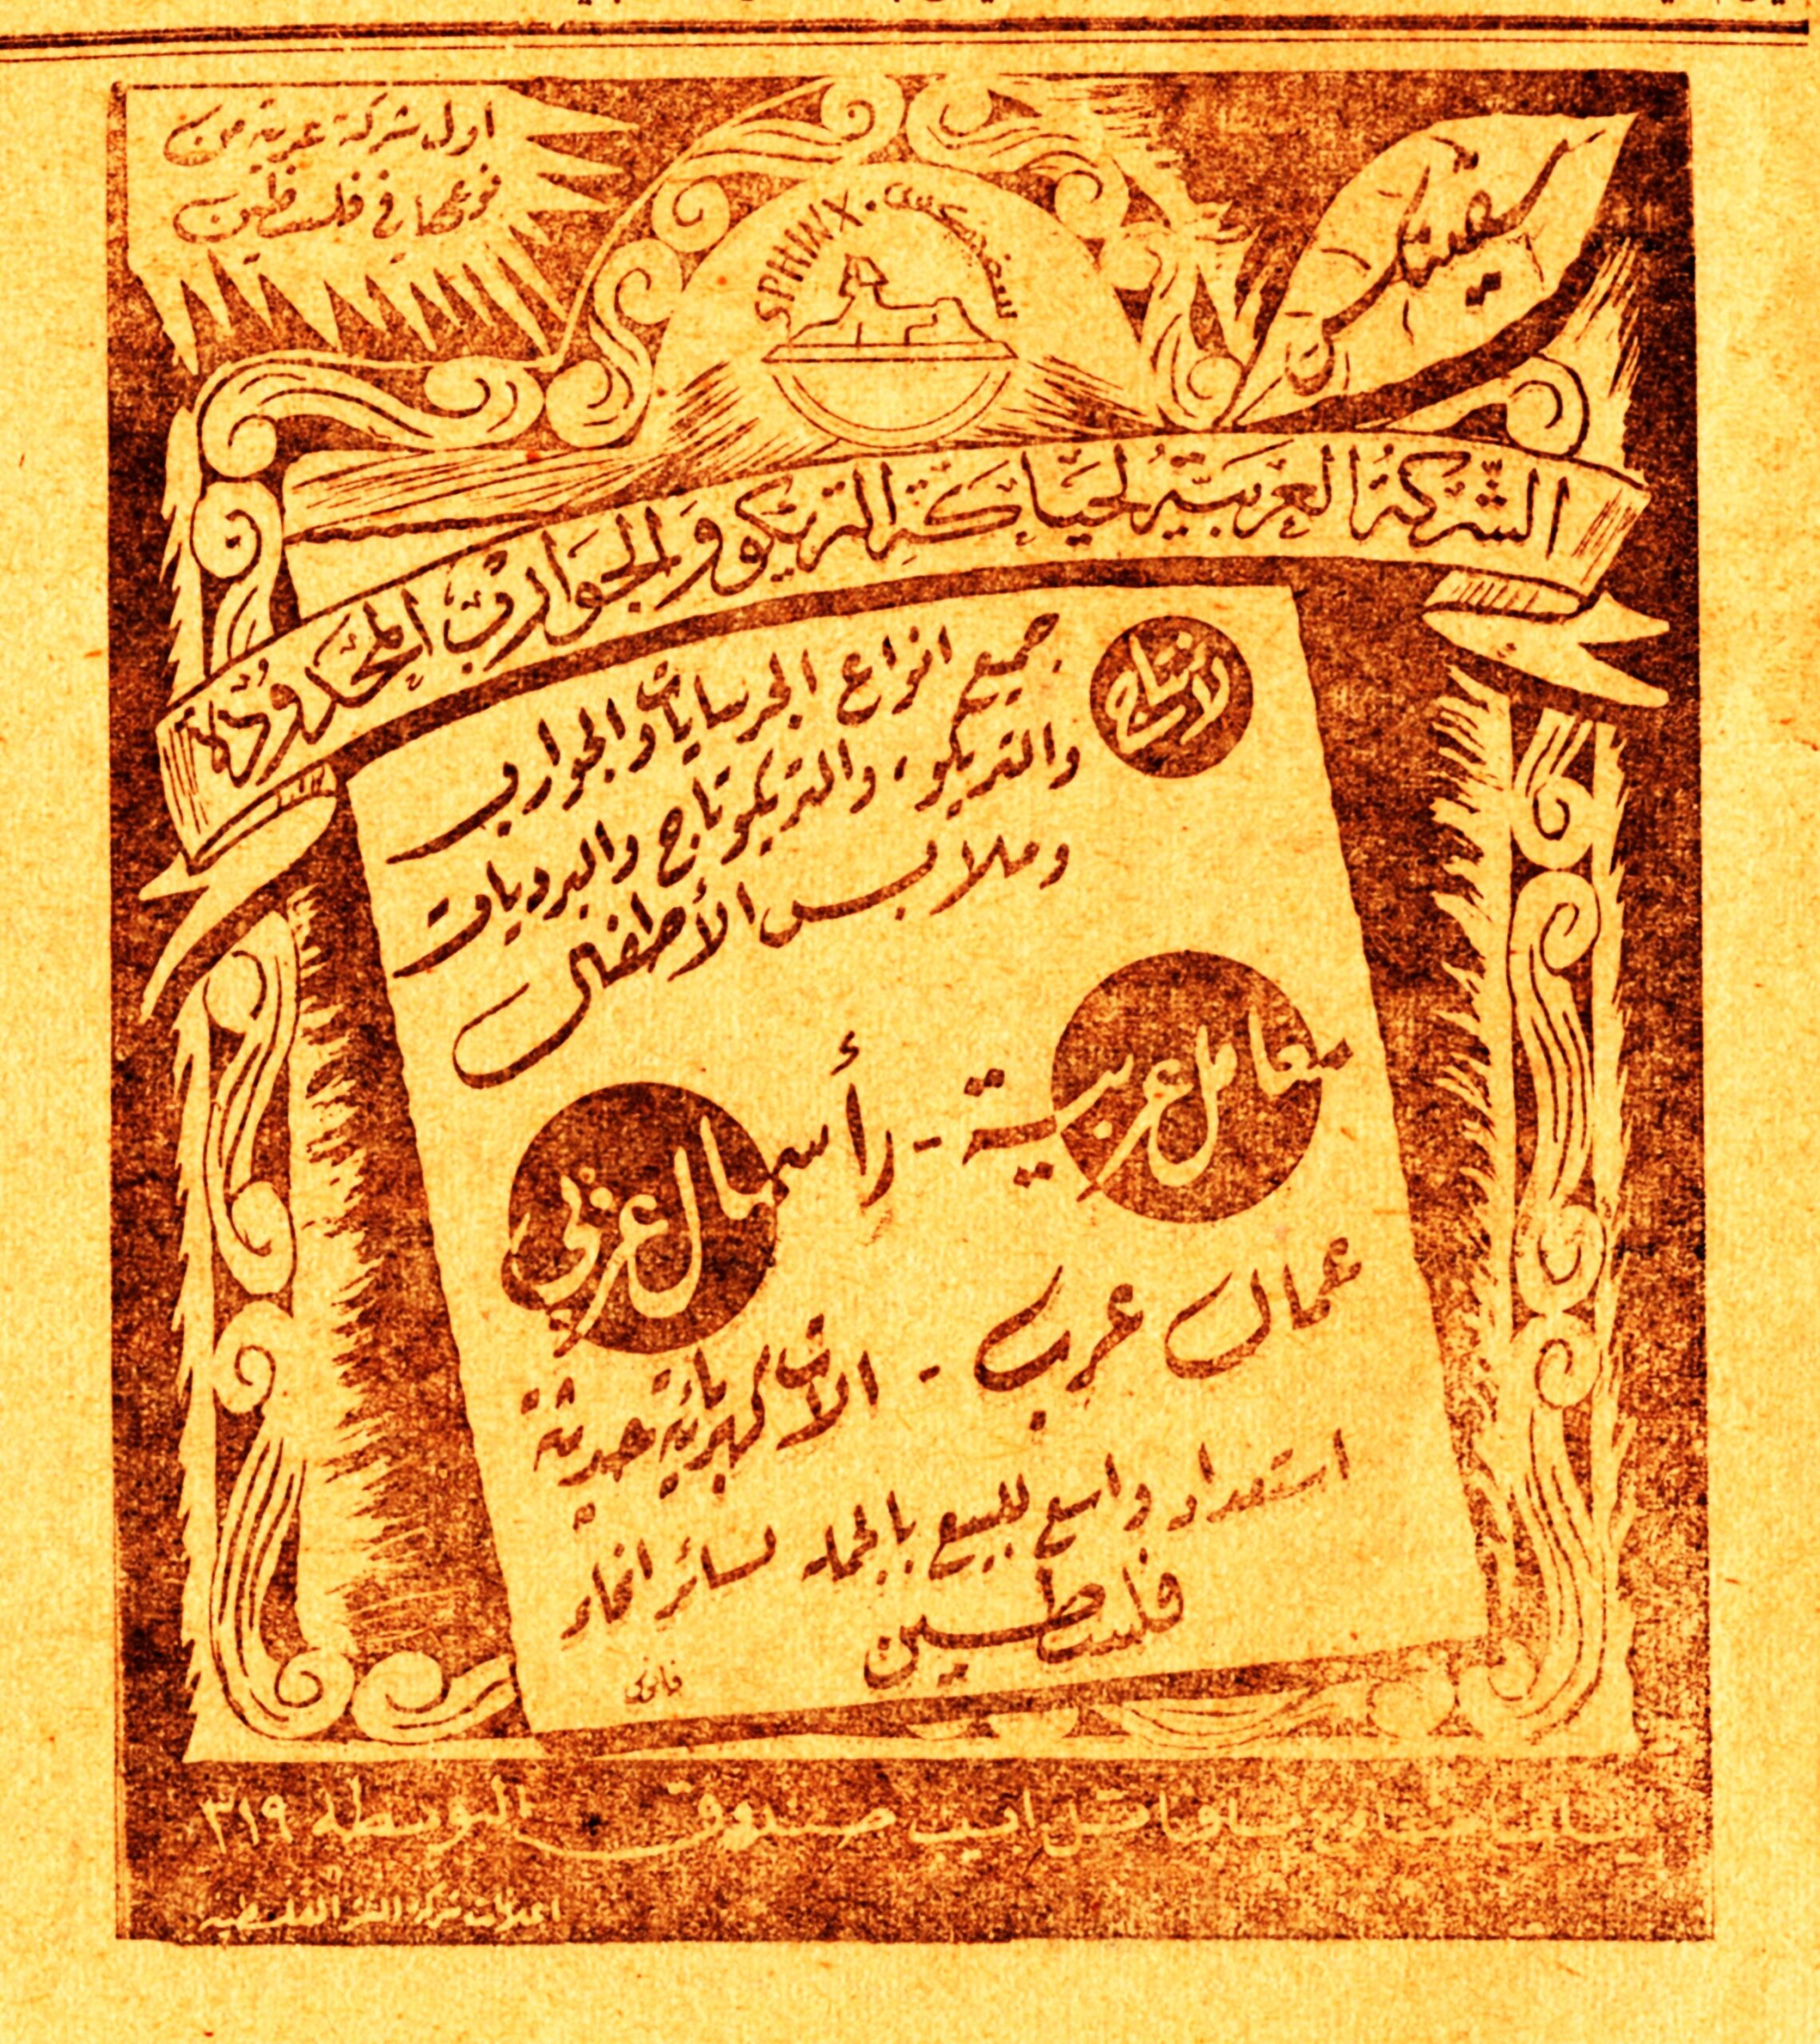 اول شركة عربية من
نوعها في فلسطين
سفينكس
SPHINX . سفينكس
الشركة العربية لحياكة التريكو والجوارب المحدودة
لأنتاج
جميع انواع الجرسايات والجوارب
والتريكو، والتريكوتاج والبرديات
وملابس الأطفال
معامل عربية - رأسمال عربي
عمال عرب - الات كهربائية حديثة
استعداد واسع للبيع بالجمله لسائر انحاء
فلسطين
يافا تل ابيب صندوق البوسطه ٣١٩
اعلانات شركة النشر الفلسطينية